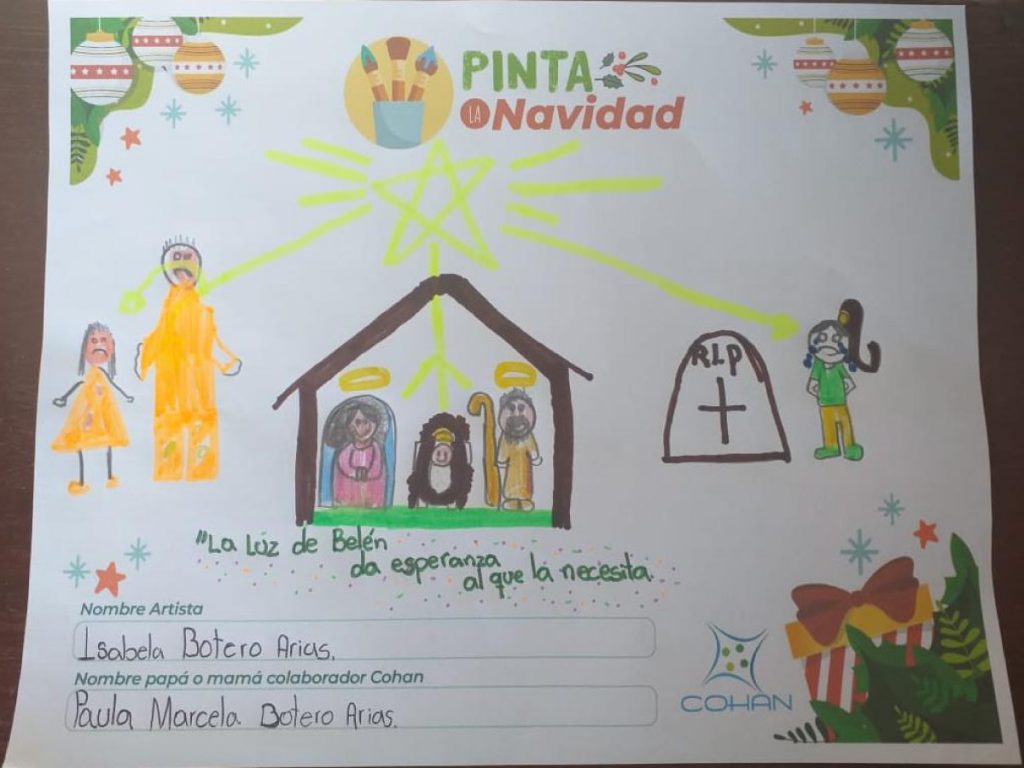 PINTA
LA Navidad
R.I.P
"La Luz de Belén
da esperanza
al que la necesita.
Nombre Artista
Isabela Botero Arias.
Nombre papá o mamá colaborador Cohan
Paula Marcela Botero Arias.
COHAN